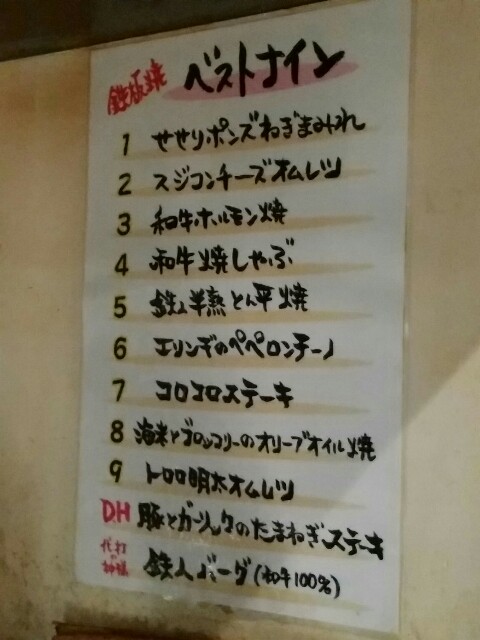 鉄板焼 ベストナイン
1 せせりポンズねぎまみれ
2 スジコンチーズオムレツ
3 和牛ホルモン焼
4 和牛焼しゃぶ
5 鉄人半熟とん平焼
6 エリンギのペペロンチーノ
7 コロコロステーキ
8 海老とブロッコリーのオリーブオイル焼
9 トロロ明太オムレツ
DH 豚とガーリックのたまねぎステーキ
代打の神様 鉄人バーグ(和牛100%)